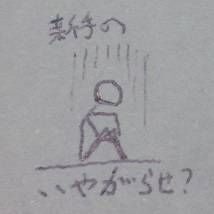 新手の
いやがらせ？